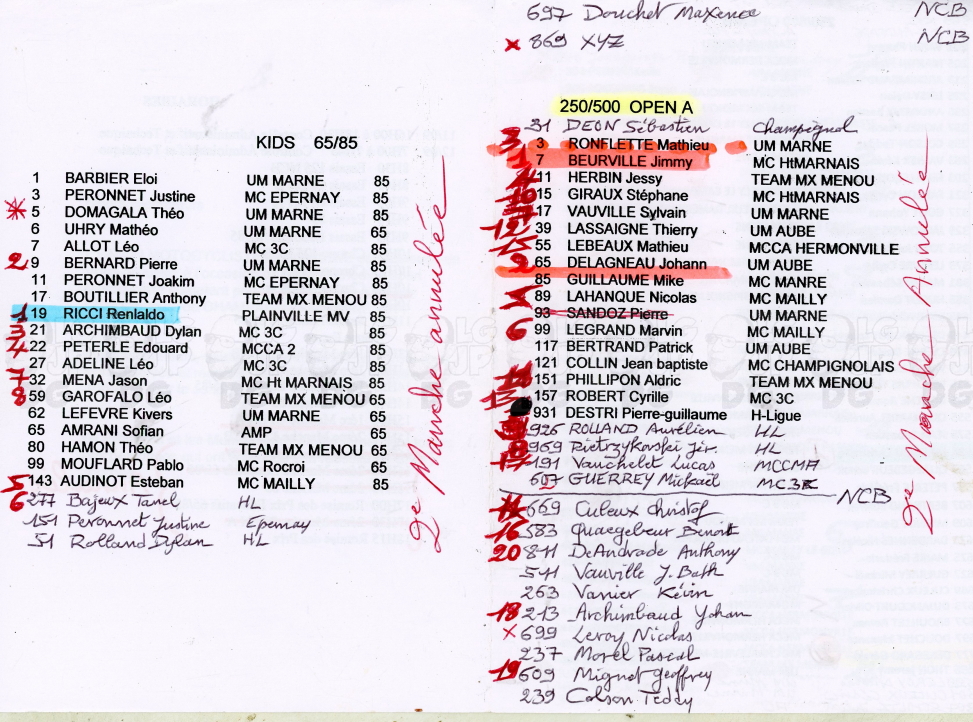 KIDS 65/85
1 BARBIER Eloi UM MARNE 85
3 PERONNET Justine MC EPERNAY 85
5 DOMAGALA Théo UM MARNE 85
6 UHRY Mathéo UM MARNE 65
7 ALLOT Léo MC 3C 85
2 9 BERNARD Pierre UM MARNE 85
11 PERONNET Joakim MC EPERNAY 85
17 BOUTILLIER Anthony TEAM MX MENOU 85
1 19 RICCI Renlaldo PLAINVILLE MV 85
3 21 ARCHIMBAUD Dylan MC 3C 85
4 22 PETERLE Edouard MCCA 2 85
27 ADELINE Léo MC 3C 85
7 32 MENA Jason MC Ht MARNAIS 85
8 59 GAROFALO Léo TEAM MX MENOU 65
62 LEFEVRE Kivers UM MARNE 65
65 AMRANI Sofian AMP 65
80 HAMON Théo TEAM MX MENOU 65
99 MOUFLARD Pablo MC Rocroi 65
5 143 AUDINOT Esteban MC MAILLY 85
6 277 Bajeux Tanel HL
151 Peronnet Justine Epernay
51 Rolland Dylan HL
2e Manche annulée
697 Douchet Maxence NCB
x 869 XYZ NCB
250/500 OPEN A
31 DEON Sébastien Champignol
3 RONFLETTE Mathieu UM MARNE
7 BEURVILLE Jimmy MC HtMARNAIS
11 HERBIN Jessy TEAM MX MENOU
15 GIRAUX Stéphane MC HtMARNAIS
17 VAUVILLE Sylvain UM MARNE
39 LASSAIGNE Thierry UM AUBE
55 LEBEAUX Mathieu MCCA HERMONVILLE
2 65 DELAGNEAU Johann UM AUBE
85 GUILLAUME Mike MC MANRE
89 LAHANQUE Nicolas MC MAILLY
93 SANDOZ Pierre UM MARNE
6 99 LEGRAND Marvin MC MAILLY
117 BERTRAND Patrick UM AUBE
121 COLLIN Jean baptiste MC CHAMPIGNOLAIS
151 PHILLIPON Aldric TEAM MX MENOU
157 ROBERT Cyrille MC 3C
931 DESTRI Pierre-guillaume H-Ligue
926 ROLLAND Aurélien HL
969 Pietrzykowski Jér. HL
191 Vauchelet Lucas MCCMA
607 GUERREY Mickaël MC3C
NCB
669 Culeux Christof
16 583 Quaegebeur Benoit
20 811 DeAndrade Anthony
541 Vauville J. Bath
263 Vanier Kévin
18 213 Archimbaud Yohan
x 699 Leroy Nicolas
237 Morel Pascal
19 609 Mignot geoffrey
239 Colson Teddy
2e Manche Annulée